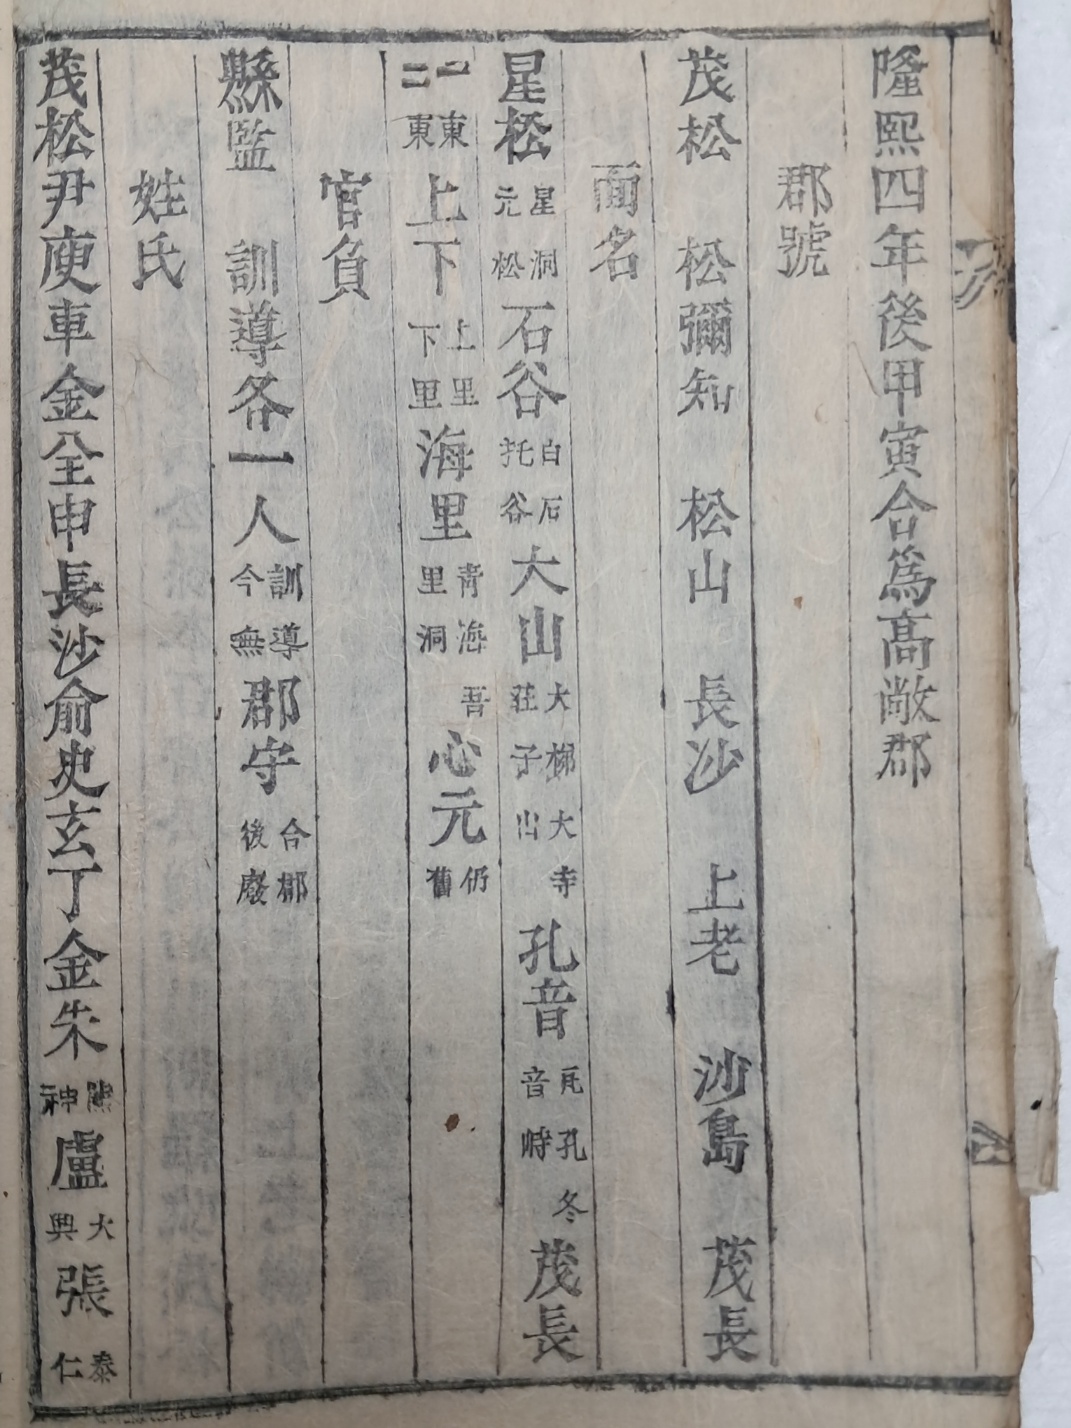 隆熙四年後甲寅合爲高敞郡
郡號
茂松 松彌知 松山 長沙 上老 沙島 茂長
面名
星松 星洞元松 石谷 白石托谷 大山 大梛大寺莊子山 孔音 瓦孔冬音峙 茂長
一東二東 上下 上里下里 海里 靑海吾里洞 心元 仍舊
官負
縣監 訓導各一人 訓導今無 郡守 合郡後廢
姓氏
茂松尹庾車金全申長沙俞史玄丁金朱 熊神 盧 大興 張 泰仁